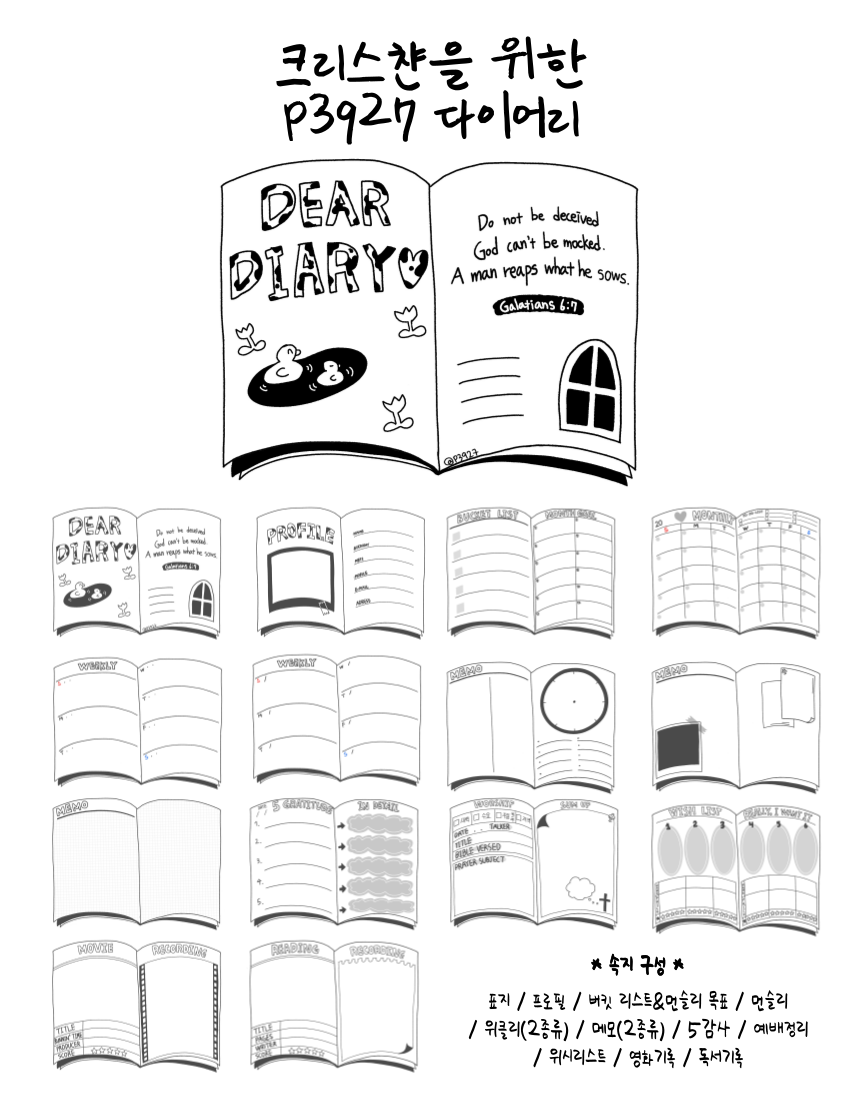 크리스챤을 위한
P3927 다이어리
DEAR
DIARY
Do not be deceived
God can't be mocked.
A man reaps what he sows.
Galatians 6:7
@P3927
DEAR
DIARY
Do not be deceived
God can't be mocked.
A man reaps what he sows.
Galatians 6:7
PROFILE
NAME
E-MAIL
BUCKET LIST
MONTH GOAL
20
MONTHLY
M T W T F
WEEKLY
WEEKLY
MEMO
MEMO
MEMO
5 GRATITUDE
IN DETAIL
1.
2.
3.
4.
5.
WORSHIP
SUM UP
DATE . . TALKER
TITLE
BIBLE VERSED
PRAYER SUBJECT
WISH LIST
REALLY, I WANT IT
1 2 3
4 5 6
MOVIE
RECORDING
TITLE
RUNNIN' TIME
PRODUCER
SCORE
READING
RECORDING
TITLE
PAGES
WRITER
SCORE
* 속지 구성 *
표지 / 프로필 / 버킷 리스트&먼슬리 목표 / 먼슬리
/ 위클리(2종류) / 메모(2종류) / 5감사 / 예배정리
/ 위시리스트 / 영화기록 / 독서기록